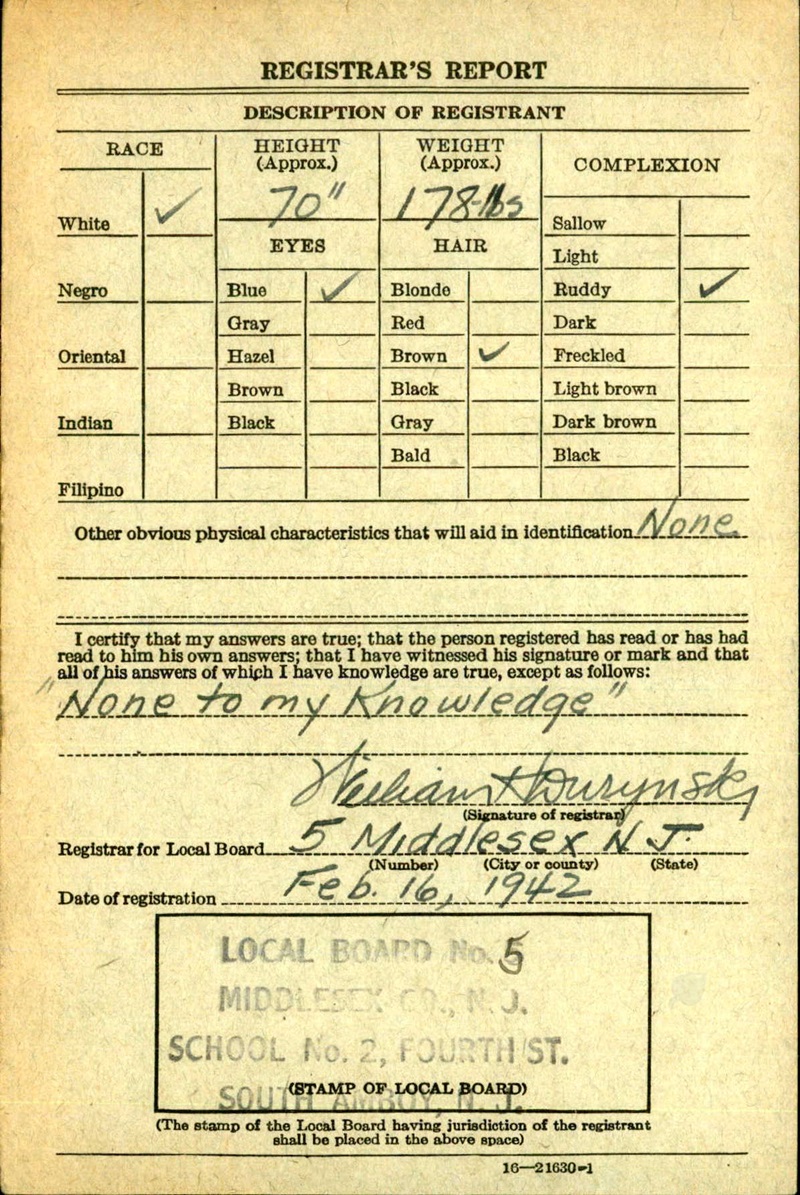 REGISTRAR'S REPORT
DESCRIPTION OF REGISTRANT
RACE
HEIGHT
(Approx.)
WEIGHT
(Approx.)
COMPLEXION
White ✓
70"
178 lbs
Sallow
EYES
HAIR
Light
Negro
Blue ✓
Blonde
Ruddy ✓
Gray
Red
Dark
Oriental
Hazel
Brown ✓
Freckled
Brown
Black
Light brown
Indian
Black
Gray
Dark brown
Bald
Black
Filipino
Other obvious physical characteristics that will aid in identification None
I certify that my answers are true; that the person registered has read or has had
read to him his own answers; that I have witnessed his signature or mark and that
all of his answers of which I have knowledge are true, except as follows:
"None to my Knowledge"
William
(Signature of registrar)
Registrar for Local Board 5 Middlesex N J.
(Number) (City or county) (State)
Date of registration Feb. 16, 1942
LOCAL BOARD No. 5
MIDDLESEX CO., N. J.
SCHOOL No. 2, FOURTH ST.
SOUTH AMBOY, N. J.
(STAMP OF LOCAL BOARD)
(The stamp of the Local Board having jurisdiction of the registrant
shall be placed in the above space)
16—21630-1